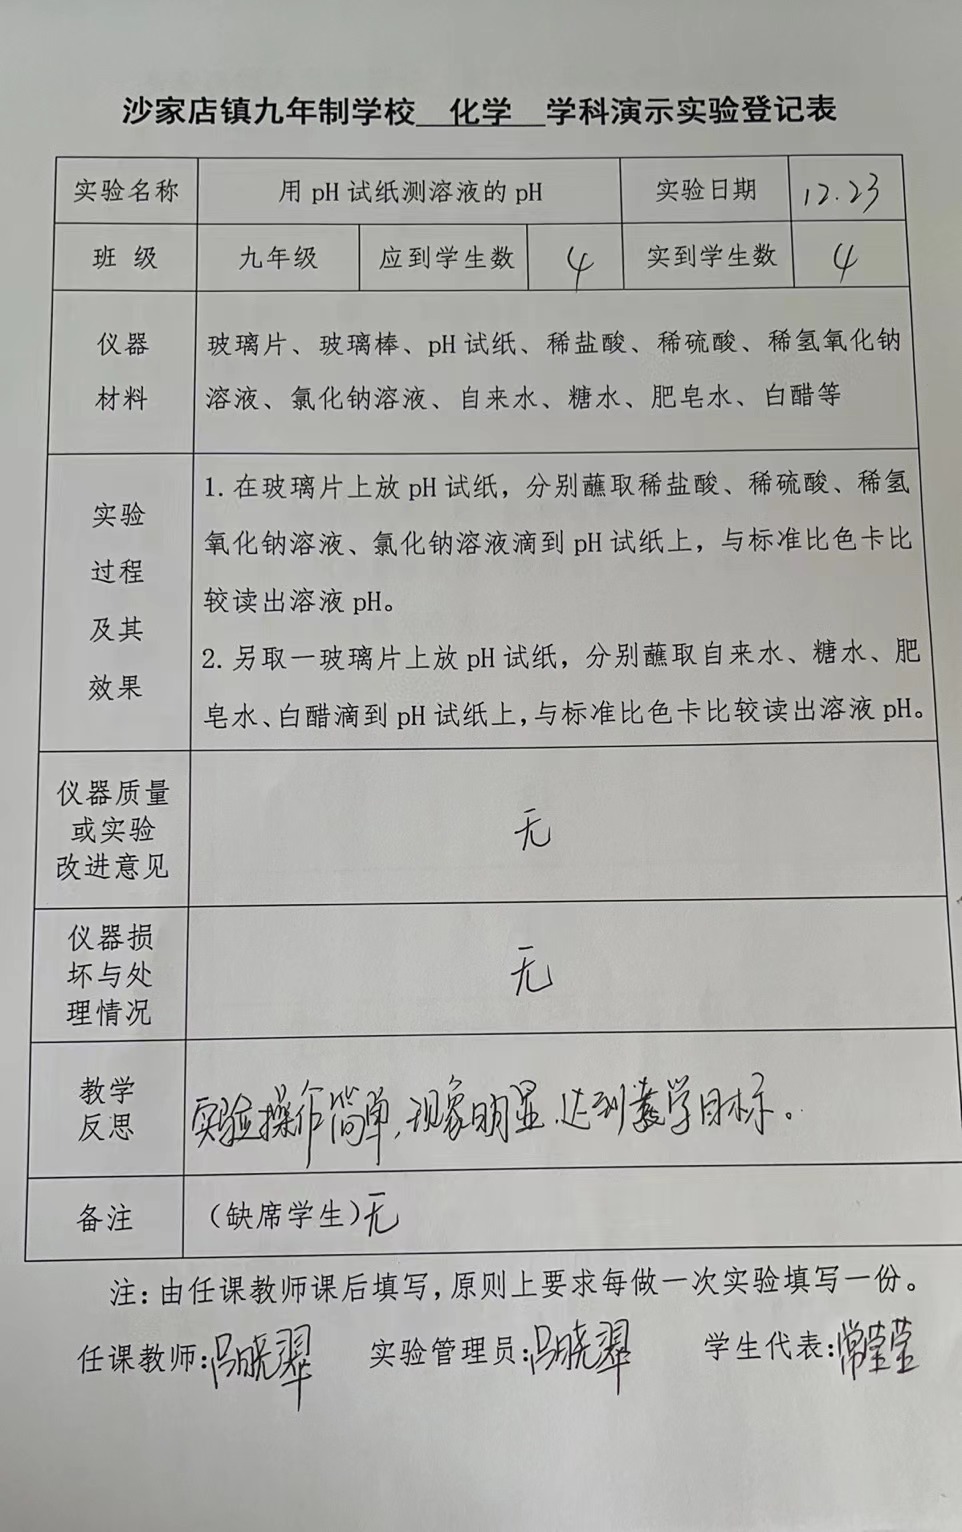 沙家店镇九年制学校 化学 学科演示实验登记表
实验名称 用 pH 试纸测溶液的 pH 实验日期 12.23
班 级 九年级 应到学生数 4 实到学生数 4
仪器
材料
玻璃片、玻璃棒、pH 试纸、稀盐酸、稀硫酸、稀氢氧化钠
溶液、氯化钠溶液、自来水、糖水、肥皂水、白醋等
实验
过程
及其
效果
1. 在玻璃片上放 pH 试纸，分别蘸取稀盐酸、稀硫酸、稀氢
氧化钠溶液、氯化钠溶液滴到 pH 试纸上，与标准比色卡比
较读出溶液 pH。
2. 另取一玻璃片上放 pH 试纸，分别蘸取自来水、糖水、肥
皂水、白醋滴到 pH 试纸上，与标准比色卡比较读出溶液 pH。
仪器质量
或实验
改进意见
无
仪器损
坏与处
理情况
无
教学
反思
实验操作简单，现象明显，达到教学目标。
备注 （缺席学生）无
注：由任课教师课后填写，原则上要求每做一次实验填写一份。
任课教师：吕晓翠 实验管理员：吕晓翠 学生代表：常莹莹